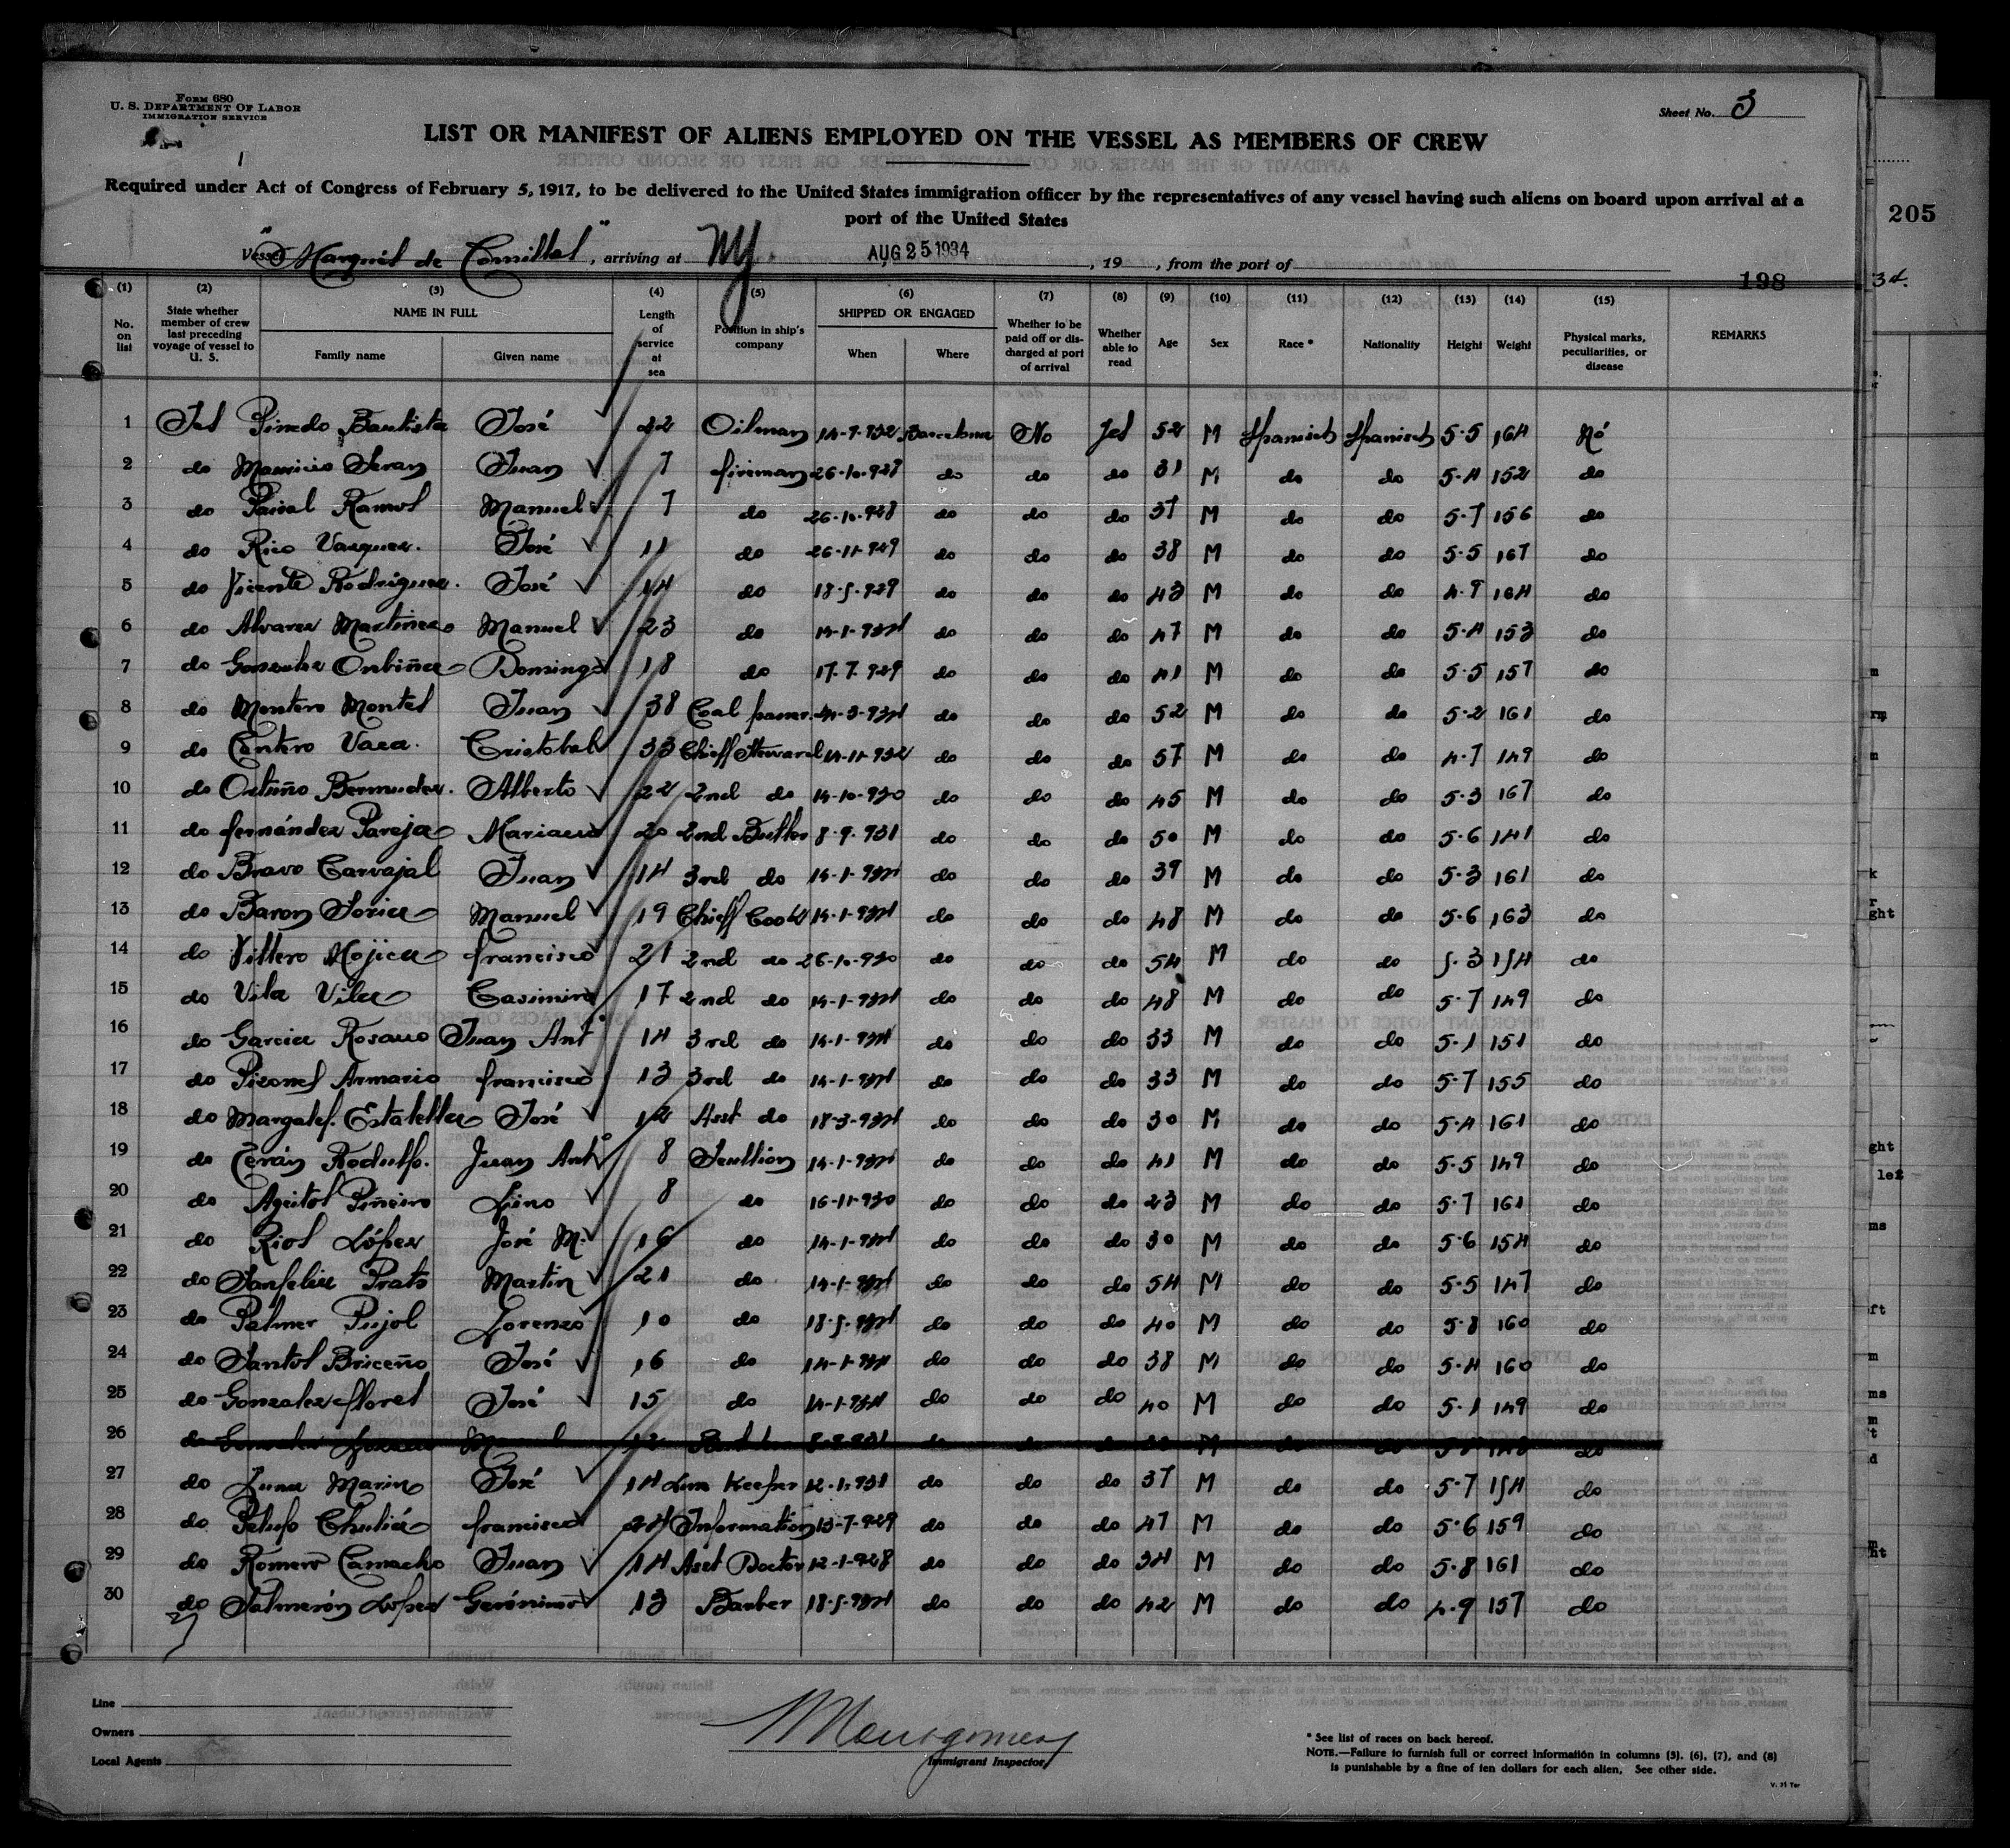 Form 680
U. S. DEPARTMENT OF LABOR
IMMIGRATION SERVICE
Sheet No. 3
LIST OR MANIFEST OF ALIENS EMPLOYED ON THE VESSEL AS MEMBERS OF CREW
Required under Act of Congress of February 5, 1917, to be delivered to the United States immigration officer by the representatives of any vessel having such aliens on board upon arrival at a
port of the United States
205
Vessel "Marqués de Comillas", arriving at NY. AUG 25 1934, 19 , from the port of
198
(1) (2) (3) (4) (5) (6) (7) (8) (9) (10) (11) (12) (13) (14) (15)
No. on list State whether member of crew last preceding voyage of vessel to U. S. NAME IN FULL Family name Given name Length of service at sea Position in ship's company SHIPPED OR ENGAGED When Where Whether to be paid off or discharged at port of arrival Whether able to read Age Sex Race * Nationality Height Weight Physical marks, peculiarities, or disease REMARKS
1 Pinedo Bautista José 22 Oilman 14-9-932 Barcelona No 52 M Spanish Spanish 5-5 164 No
2 do Mauricio Juan 7 fireman do do do 31 M do do 5-4 152 do
3 do Manuel 7 do do do do 37 M do do 5-7 156 do
4 do Rico Vazquez. José 11 do 26-11-929 do do do 38 M do do 5-5 167 do
5 do Vicente Rodriguez. José 14 do 18-5-929 do do do 43 M do do 4-9 164 do
6 do Alvarez Martinez Manuel 23 do 14-1-934 do do do 47 M do do 5-4 153 do
7 do Gonzalez Domingo 18 do 17-7-929 do do do 41 M do do 5-5 157 do
8 do Montero Montes Juan 38 Coal passer do do do 52 M do do 5-2 161 do
9 do Cristobal 33 Chieff Steward 14-11-932 do do do 57 M do do 4-7 149 do
10 do Ortuño Bermudez. Alberto 22 2nd do 14-10-930 do do do 45 M do do 5-3 167 do
11 do fernández Pareja Mariano 20 2nd Buttler 8-9-931 do do do 50 M do do 5-6 141 do
12 do Bravo Carvajal Juan 14 3rd do 14-1-934 do do do 39 M do do 5-3 161 do
13 do Baron Manuel 19 Chieff Cook 14-1-934 do do do 48 M do do 5-6 163 do
14 do Villero Mojica francisco 21 2nd do 26-10-930 do do do 54 M do do 5-3 154 do
15 do Vila Vila Casimiro 17 2nd do 14-1-934 do do do 48 M do do 5-7 149 do
16 do Garcia Rosano Juan Antº 14 3rd do 14-1-934 do do do 33 M do do 5-1 151 do
17 do Armario francisco 13 3rd do 14-1-934 do do do 33 M do do 5-7 155 do
18 do Margalef. José 12 Asst do 18-3-934 do do do 30 M do do 5-4 161 do
19 do Terán Rodulfo. Juan Antº 8 Scullion 14-1-934 do do do 41 M do do 5-5 149 do
20 do Piñeiro Lino 8 do 16-11-930 do do do 23 M do do 5-7 161 do
21 do Rios López José M. 16 do 14-1-934 do do do 30 M do do 5-6 154 do
22 do Sanfeliu Prats Martin 21 do 14-1-934 do do do 54 M do do 5-5 147 do
23 do Palmer Pujol Lorenzo 10 do 18-5-934 do do do 40 M do do 5-8 160 do
24 do Santos Briceño José 16 do 14-1-934 do do do 38 M do do 5-4 160 do
25 do Gonzalez flores José 15 do 14-1-934 do do do 40 M do do 5-1 149 do
26
27 do Luna Marin José 14 Keeper 12-1-931 do do do 37 M do do 5-7 154 do
28 do Pelufo Chuliá francisco 24 Information 13-7-929 do do do 47 M do do 5-6 159 do
29 do Romero Camacho Juan 14 Asst Doctor 12-1-928 do do do 34 M do do 5-8 161 do
30 do Salmerón López Gerónimo 13 Barber 18-5-934 do do do 42 M do do 4-9 157 do
Line
Owners
Local Agents
Immigrant Inspector
* See list of races on back hereof.
NOTE.—Failure to furnish full or correct information in columns (3), (6), (7), and (8)
is punishable by a fine of ten dollars for each alien. See other side.